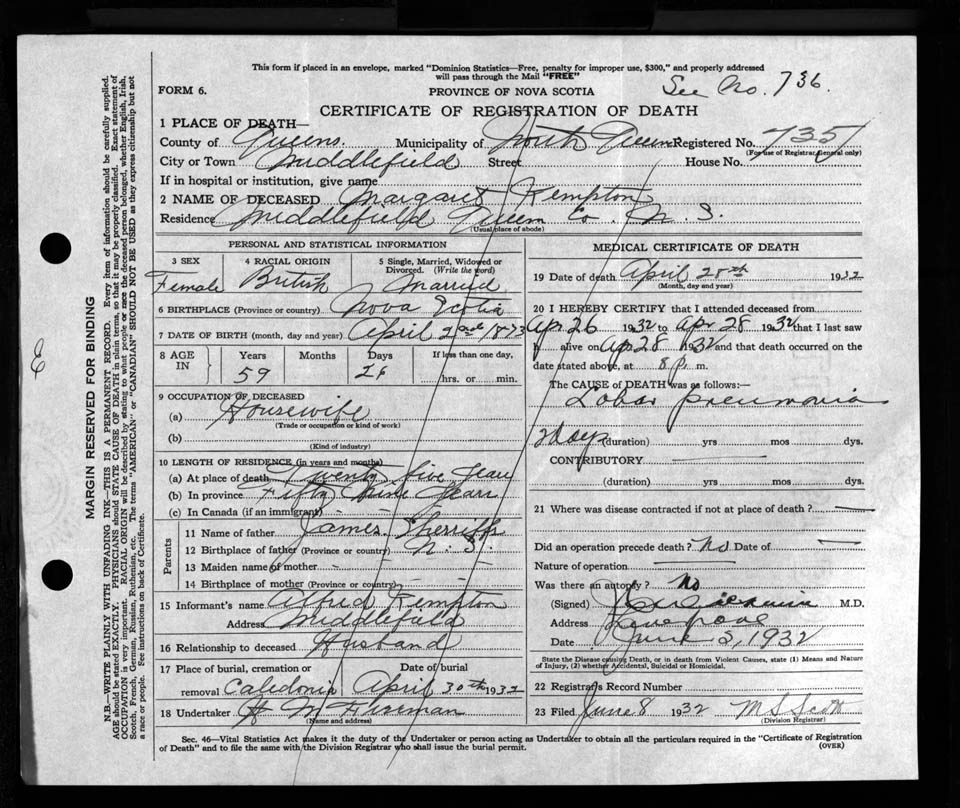 This form if placed in an envelope, marked "Dominion Statistics—Free, penalty for improper use, $300," and properly addressed
will pass through the Mail "FREE"
FORM 6.
PROVINCE OF NOVA SCOTIA
See No. 736.
CERTIFICATE OF REGISTRATION OF DEATH
1 PLACE OF DEATH—
County of Queens Municipality of North Queens Registered No. 735
(For use of Registrar General only)
City or Town Middlefield Street House No.
If in hospital or institution, give name
2 NAME OF DECEASED Margaret Kempton
Residence Middlefield Queens Co. N. S.
(Usual place of abode)
PERSONAL AND STATISTICAL INFORMATION
3 SEX 4 RACIAL ORIGIN 5 Single, Married, Widowed or
Divorced. (Write the word)
Female British Married
6 BIRTHPLACE (Province or country) Nova Scotia
7 DATE OF BIRTH (month, day and year) April 2nd 1873
8 AGE IN Years Months Days If less than one day,
59 26 hrs. or min.
9 OCCUPATION OF DECEASED
(a) Housewife
(Trade or occupation or kind of work)
(b)
(Kind of industry)
10 LENGTH OF RESIDENCE (in years and months)
(a) At place of death Twenty five Years
(b) In province Fifty Nine Years
(c) In Canada (if an immigrant)
Parents
11 Name of father James Sherriffs
12 Birthplace of father (Province or country) N. S.
13 Maiden name of mother - -
14 Birthplace of mother (Province or country) - -
15 Informant's name Alfred Kempton
Address Middlefield
16 Relationship to deceased Husband
17 Place of burial, cremation or Date of burial
removal Caledonia April 30th 1932
18 Undertaker H M
(Name and address)
MEDICAL CERTIFICATE OF DEATH
19 Date of death April 28th 1932
(Month, day and year)
20 I HEREBY CERTIFY that I attended deceased from
Apr 26 1932 to Apr 28 1932 that I last saw
h alive on Apr 28 1932 and that death occurred on the
date stated above, at 8 P. m.
The CAUSE of DEATH was as follows:—
Lobar Pneumonia
2 days (duration) yrs mos dys.
CONTRIBUTORY
(duration) yrs mos dys.
21 Where was disease contracted if not at place of death?
Did an operation precede death? No Date of
Nature of operation
Was there an autopsy? No
(Signed) M.D.
Address
Date June 3, 1932
State the Disease causing Death, or in death from Violent Causes, state (1) Means and Nature
of Injury, (2) whether Accidental, Suicidal or Homicidal.
22 Registrar's Record Number
23 Filed June 8 1932 M S Scott
(Division Registrar)
Sec. 46—Vital Statistics Act makes it the duty of the Undertaker or person acting as Undertaker to obtain all the particulars required in the "Certificate of Registration
of Death" and to file the same with the Division Registrar who shall issue the burial permit.
(OVER)
MARGIN RESERVED FOR BINDING
N.B.—WRITE PLAINLY WITH UNFADING INK—THIS IS A PERMANENT RECORD. Every item of information should be carefully supplied.
AGE should be stated EXACTLY. PHYSICIANS should STATE CAUSE OF DEATH in plain terms, so that it may be properly classified. Exact statement of
OCCUPATION is very important. RACIAL ORIGIN will be described by stating to what people or race the deceased person belonged, whether English, Irish,
Scotch, French, German, Russian, Ruthenian, etc. The terms "AMERICAN" or "CANADIAN" SHOULD NOT BE USED as they express citizenship but not
a race or people. See instructions on back of Certificate.